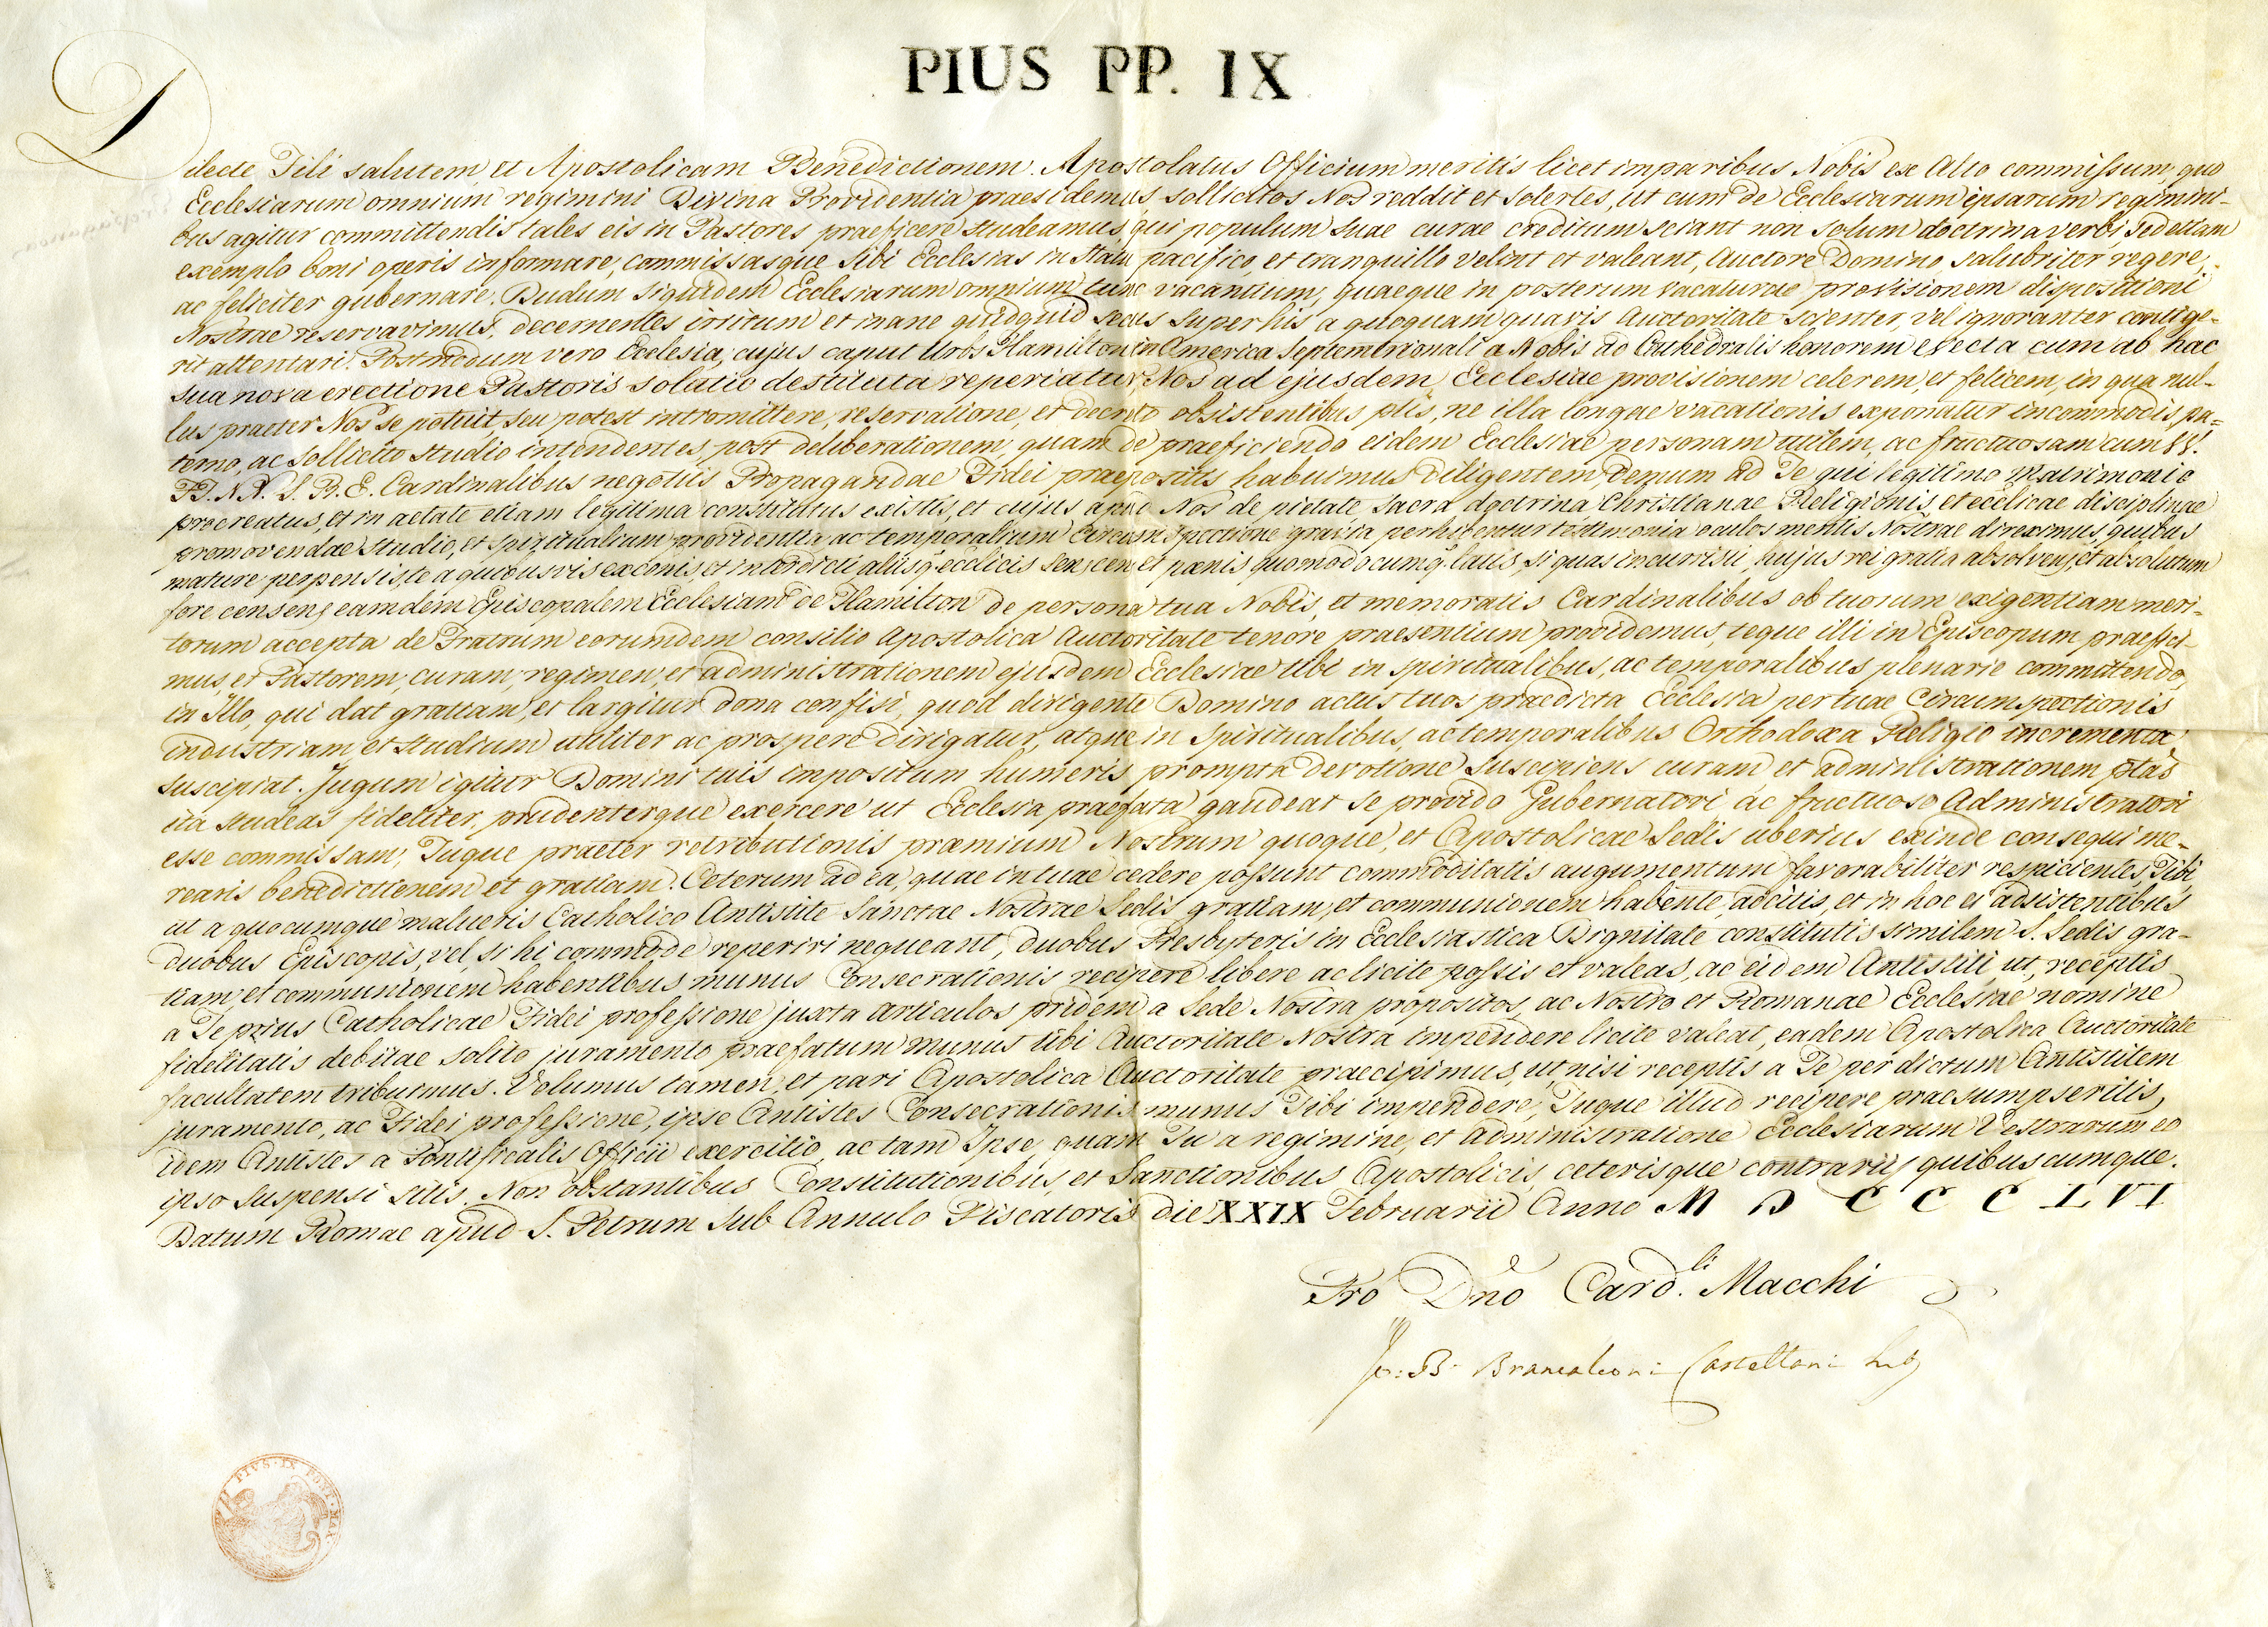 PIUS PP. IX
Dilecte Fili salutem et Apostolicam Benedictionem. Apostolatus Officium meritis licet imparibus Nobis ex Alto commissum, quo
Ecclesiarum omnium regimini Divina Providentia praesidemus sollicitos Nos reddit et solertes, ut cum de Ecclesiarum ipsarum regimini-
bus agitur committendis tales eis in Pastores praeficere studeamus, qui populum suae curae creditum sciant non solum doctrina verbi, sed etiam
exemplo boni operis informare, commissasque sibi Ecclesias in statu pacifico, et tranquillo velint et valeant, Auctore Domino, salubriter regere,
ac feliciter gubernare. Dudum siquidem Ecclesiarum omnium tunc vacantium, quaeque in posterum vacaturae provisionem dispositioni
Nostrae reservavimus, decernentes irritum et inane quidquid secus super his a quoquam quavis Auctoritate scienter, vel ignoranter contige-
rit attentari. Postmodum vero Ecclesia, cujus caput Urbs Hamilton in America Septemtrionali a Nobis ad Cathedralis honorem evecta cum ab hac
sua nova erectione Pastoris solatio destituta reperiatur Nos ad ejusdem Ecclesiae provisionem celerem, et felicem, in qua nul-
lus praeter Nos se potuit seu potest intromittere, reservatione, et decreto obsistentibus ptis, ne illa longae vacationis exponatur incommodis, pa-
terno, ac sollicito studio intendentes, post deliberationem, quam de praeficiendo eidem Ecclesiae personam utilem, ac fructuosam cum VV.
FF. NN. S. R. E. Cardinalibus negotiis Propagandae Fidei praepositis habuimus diligentem demum ad Te qui legitimo Matrimonio
procreatus, et in aetate etiam legitima constitutus existis, et cujus apud Nos de pietate sacra doctrina Christianae Religionis, et ecclicae disciplinae
promovendae studio, et spiritualium providentia ac temporalium circumspectione gravia perhibentur testimonia oculos mentis Nostrae direximus, quibus
mature perpensis, te a quibusvis exconis, et interdicti aliisq. ecclicis sen, cen et poenis quomodocumq. latis, si quas incurristi, hujus rei gratia absolvens, et absolutum
fore censens eamdem Episcopalem Ecclesiam de Hamilton de persona tua Nobis, et memoratis Cardinalibus ob tuorum exigentiam meri-
torum accepta de Fratrum eorumdem consilio Apostolica Auctoritate tenore praesentium providemus, teque illi in Episcopum praefici-
mus, et Pastorem, curam, regimen, et administrationem ejusdem Ecclesiae tibi in spiritualibus, ac temporalibus plenarie committendo,
in Illo, qui dat gratiam, et largitur dona confisi, quod dirigente Domino actus tuos praedicta Ecclesia per tuae Circumspectionis
industriam, et studium utiliter ac prospere dirigatur, atque in spiritualibus, ac temporalibus Orthodoxa Religio incrementa
suscipiat. Jugum igitur Domini tuis impositum humeris prompta devotione suscipiens curam et administrationem ptas
ita studeas fideliter, prudenterque exercere ut Ecclesia praefata gaudeat se provido Gubernatori ac fructuoso Administratori
esse commissam, Tuque praeter retributionis praemium Nostram quoque, et Apostolicae Sedis uberius exinde consequi me-
rearis benedictionem et gratiam. Ceterum ad ea, quae in tuae cedere possunt commoditatis augumentum favorabiliter respicientes Tibi,
ut a quocumque malueris Catholico Antistite Sanctae Nostrae Sedis gratiam, et communionem habente, adcitis, et in hoc ei adsistentibus
duobus Episcopis, vel, si hi commode reperiri nequeant, duobus Presbyteris in Ecclesiastica Dignitate constitutis similem S. Sedis gra-
tiam, et communionem habentibus munus Consecrationis recipere libere ac licite possis et valeas, ac eidem Antistiti ut, receptis
a Te prius Catholicae Fidei professione juxta articulos pridem a Sede Nostra propositos, ac Nostro et Romanae Ecclesiae nomine
fidelitatis debitae solito juramento praefatum munus tibi Auctoritate Nostra impendere licite valeat, eadem Apostolica Auctoritate
facultatem tribuimus. Volumus tamen, et pari Apostolica Auctoritate praecipimus, ut nisi receptis a Te per dictum Antistitem
juramento, ac Fidei professione, ipse Antistes Consecrationis munus Tibi impendere, Tuque illud recipere praesumpseritis,
idem Antistes a Pontificalis Officii exercitio, ac tam Ipse, quam Tu a regimine, et administratione Ecclesiarum Vestrarum eo
ipso suspensi sitis. Non obstantibus Constitutionibus, et Sanctionibus Apostolicis, ceterisque contrariis quibuscumque.
Datum Romae apud S. Petrum sub Annulo Piscatoris die XXIX Februarii Anno MDCCCLVI
Pro Dno Card.li Macchi
Jo: B. Brancaleoni Castellani
PIVS·IX PONT·MAX